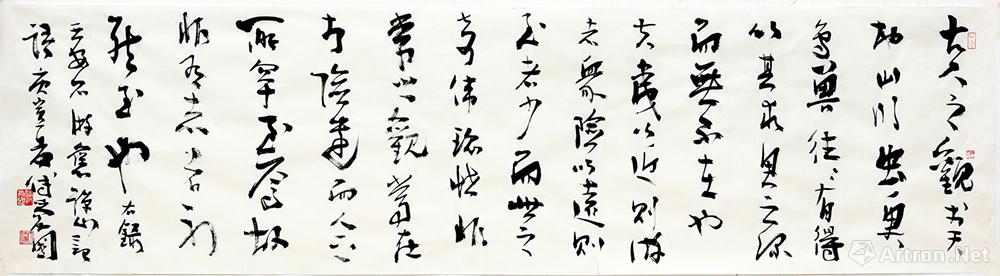 古人之觀於天
地山川虫魚
鳥獸往々有得
以其求思之深
而無不在也
夫夷以近則游
者衆險以遠則
至者少而世之
奇偉瑰怪非
常之觀常在
於險遠而人之
所罕至焉故
非有志者不
能至也 右錄
王安石游褒禪山記
語庚寅春
Artron.Net